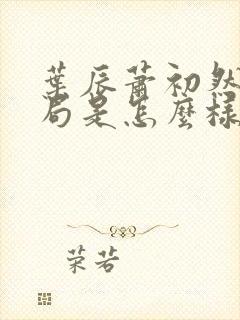 葉辰蕭初然
局是怎麼樣
荣若